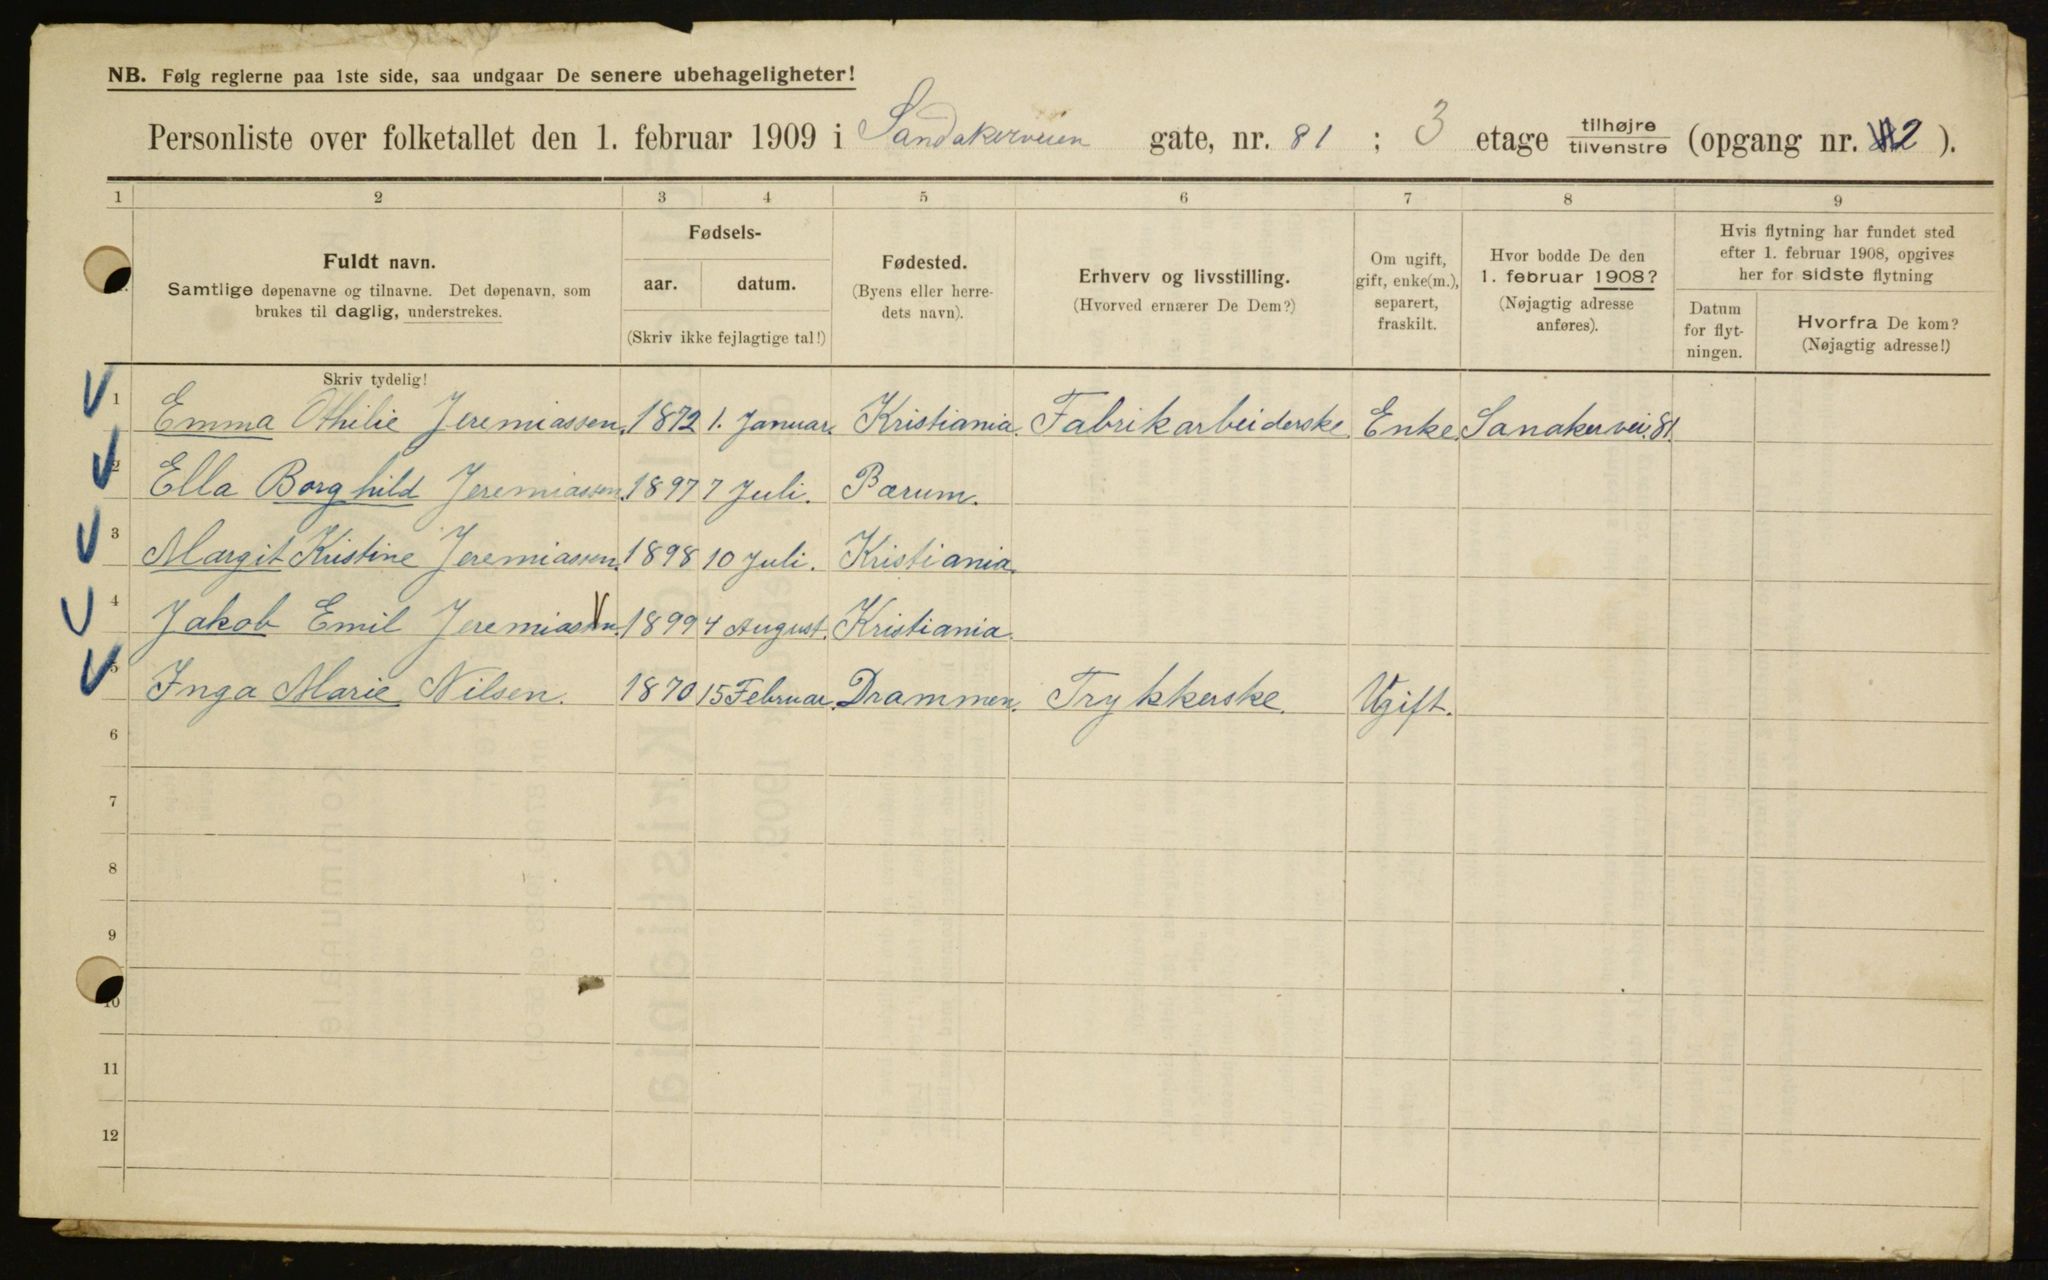 NB. Følg reglerne paa 1ste side, saa undgaar De senere ubehageligheter!
Personliste over folketallet den 1. februar 1909 i Sandakerveien gate, nr. 81 ; 3 etage tilhøjre tilvenstre (opgang nr. 2 ).
1 2 3 4 5 6 7 8 9
Fuldt navn.
Samtlige døpenavne og tilnavne. Det døpenavn, som
brukes til daglig, understrekes.
Skriv tydelig!
Fødsels-
aar. datum.
(Skriv ikke fejlagtige tal!)
Fødested.
(Byens eller herre-
dets navn).
Erhverv og livsstilling.
(Hvorved ernærer De Dem?)
Om ugift,
gift, enke(m.),
separert,
fraskilt.
Hvor bodde De den
1. februar 1908?
(Nøjagtig adresse
anføres).
Hvis flytning har fundet sted
efter 1. februar 1908, opgives
her for sidste flytning
Datum
for flyt-
ningen.
Hvorfra De kom?
(Nøjagtig adresse!)
1 Emma Othilie Jeremiassen. 1872 1. Januar. Kristiania. Fabrikarbeiderske Enke. Sanakervei. 81
2 Ella Borghild Jeremiassen. 1897 7 Juli. Bærum.
3 Margit Kristine Jeremiassen. 1898 10 Juli. Kristiania.
4 Jakob Emil Jeremiassen. 1899 4 August. Kristiania.
5 Inga Marie Nilsen. 1870 15 Februar. Drammen. Trykkerske. Ugift.
6
7
8
9
10
11
12